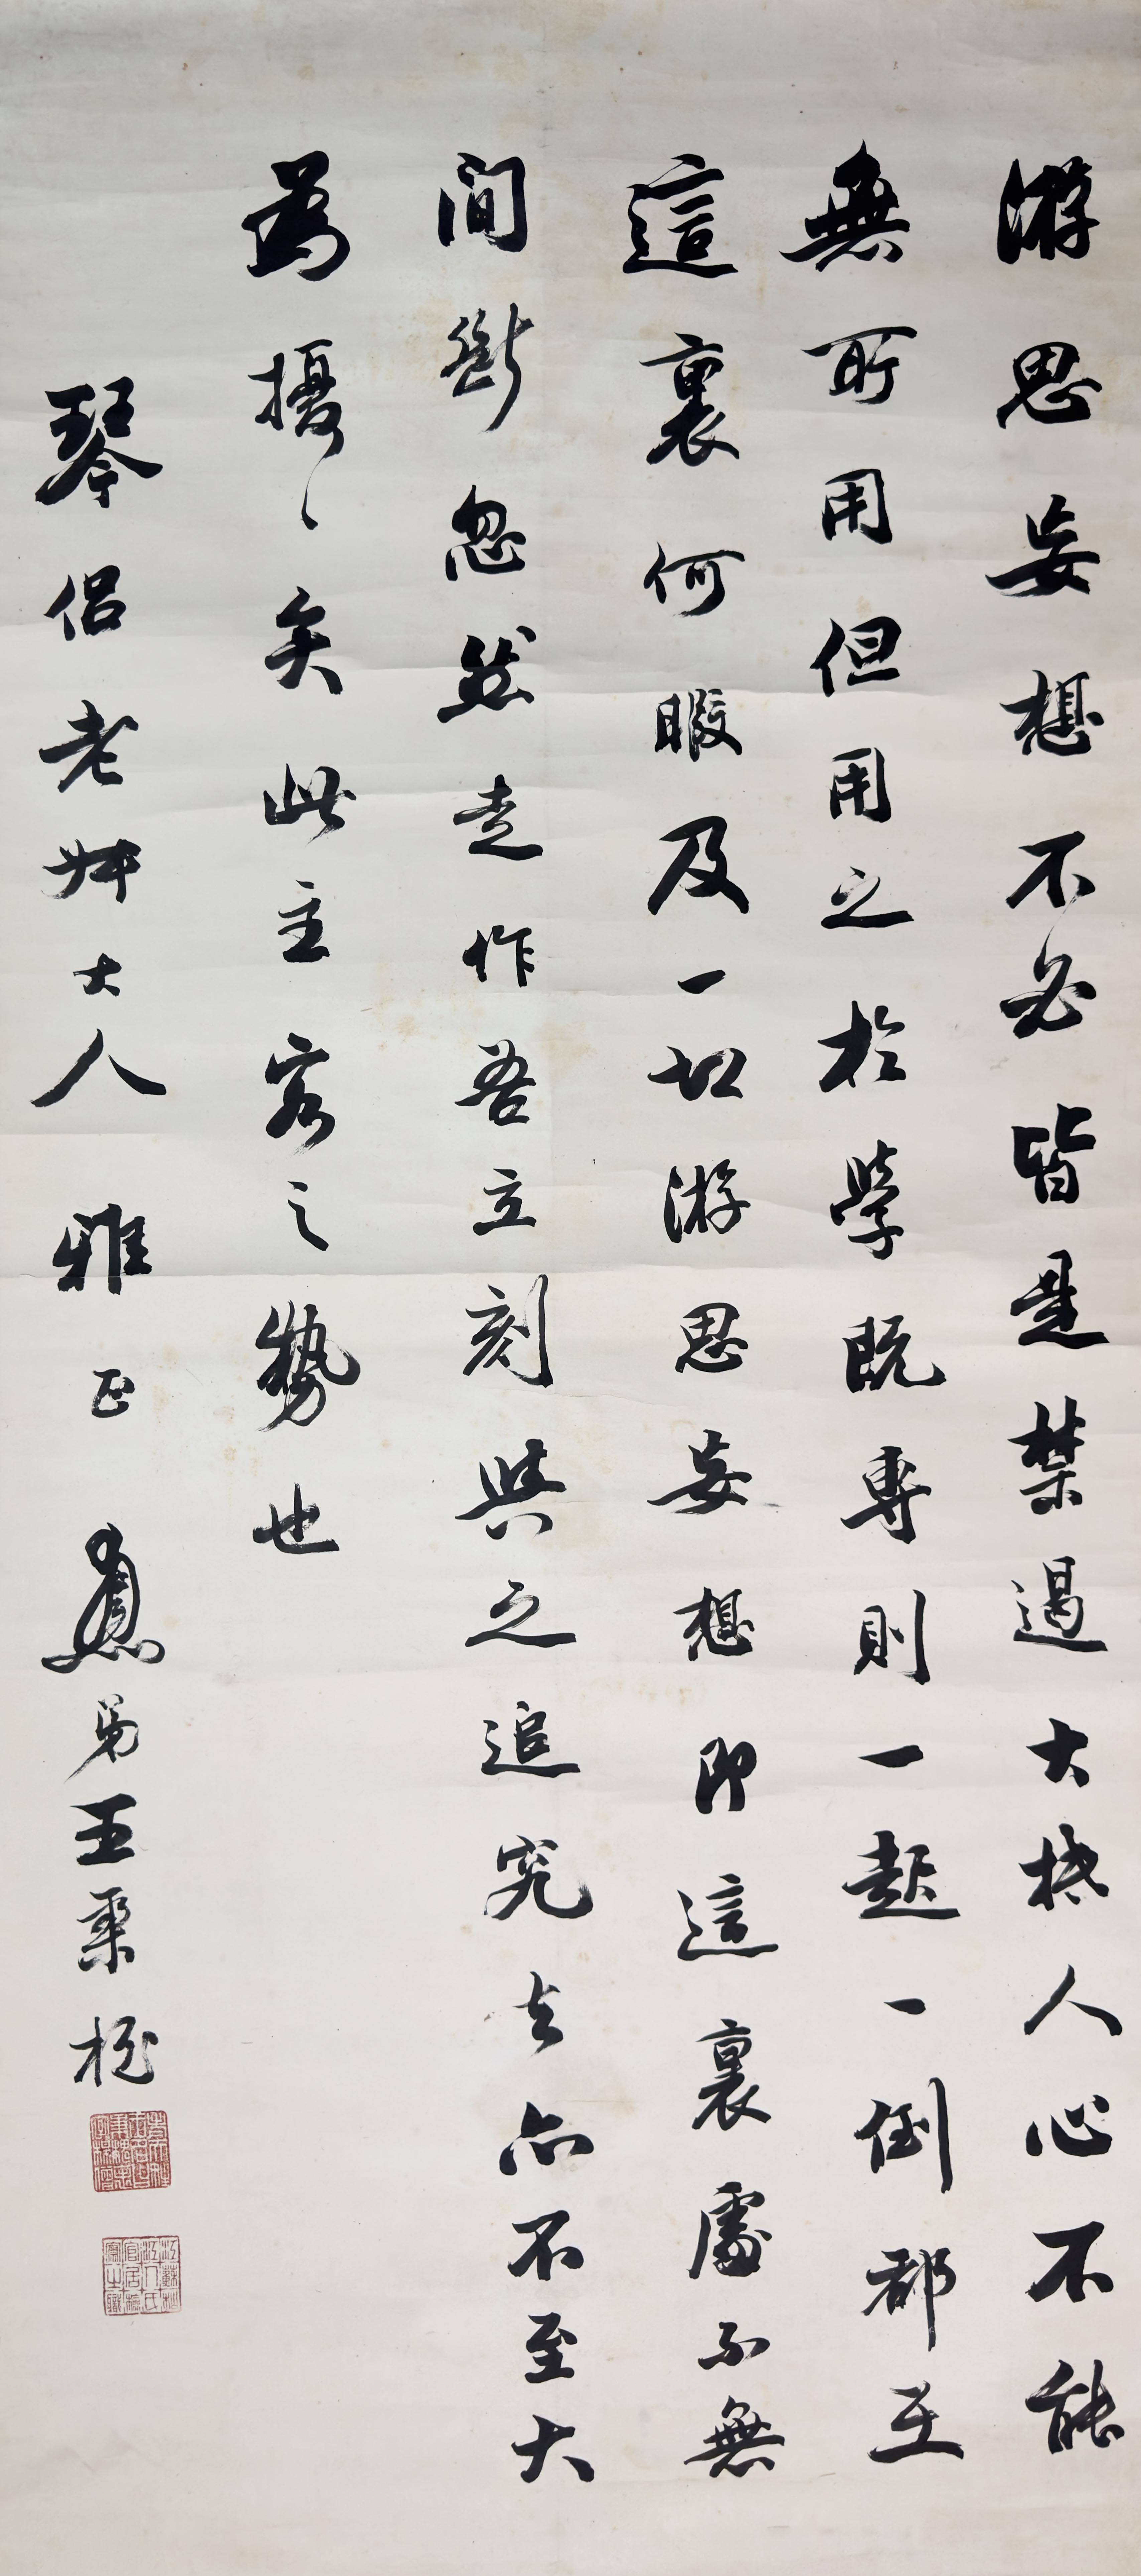 游思妄想不必皆是禁遏大抵人心不能
無所用但用之於學既專則一起一倒都在
這裏何暇及一切游思妄想即這裏處不無
間斷忽然走作吾立刻與之追究去亦不至大
為擾〻矣此主客之勢也
琴侶老棣大人 雅正 愚弟王秉